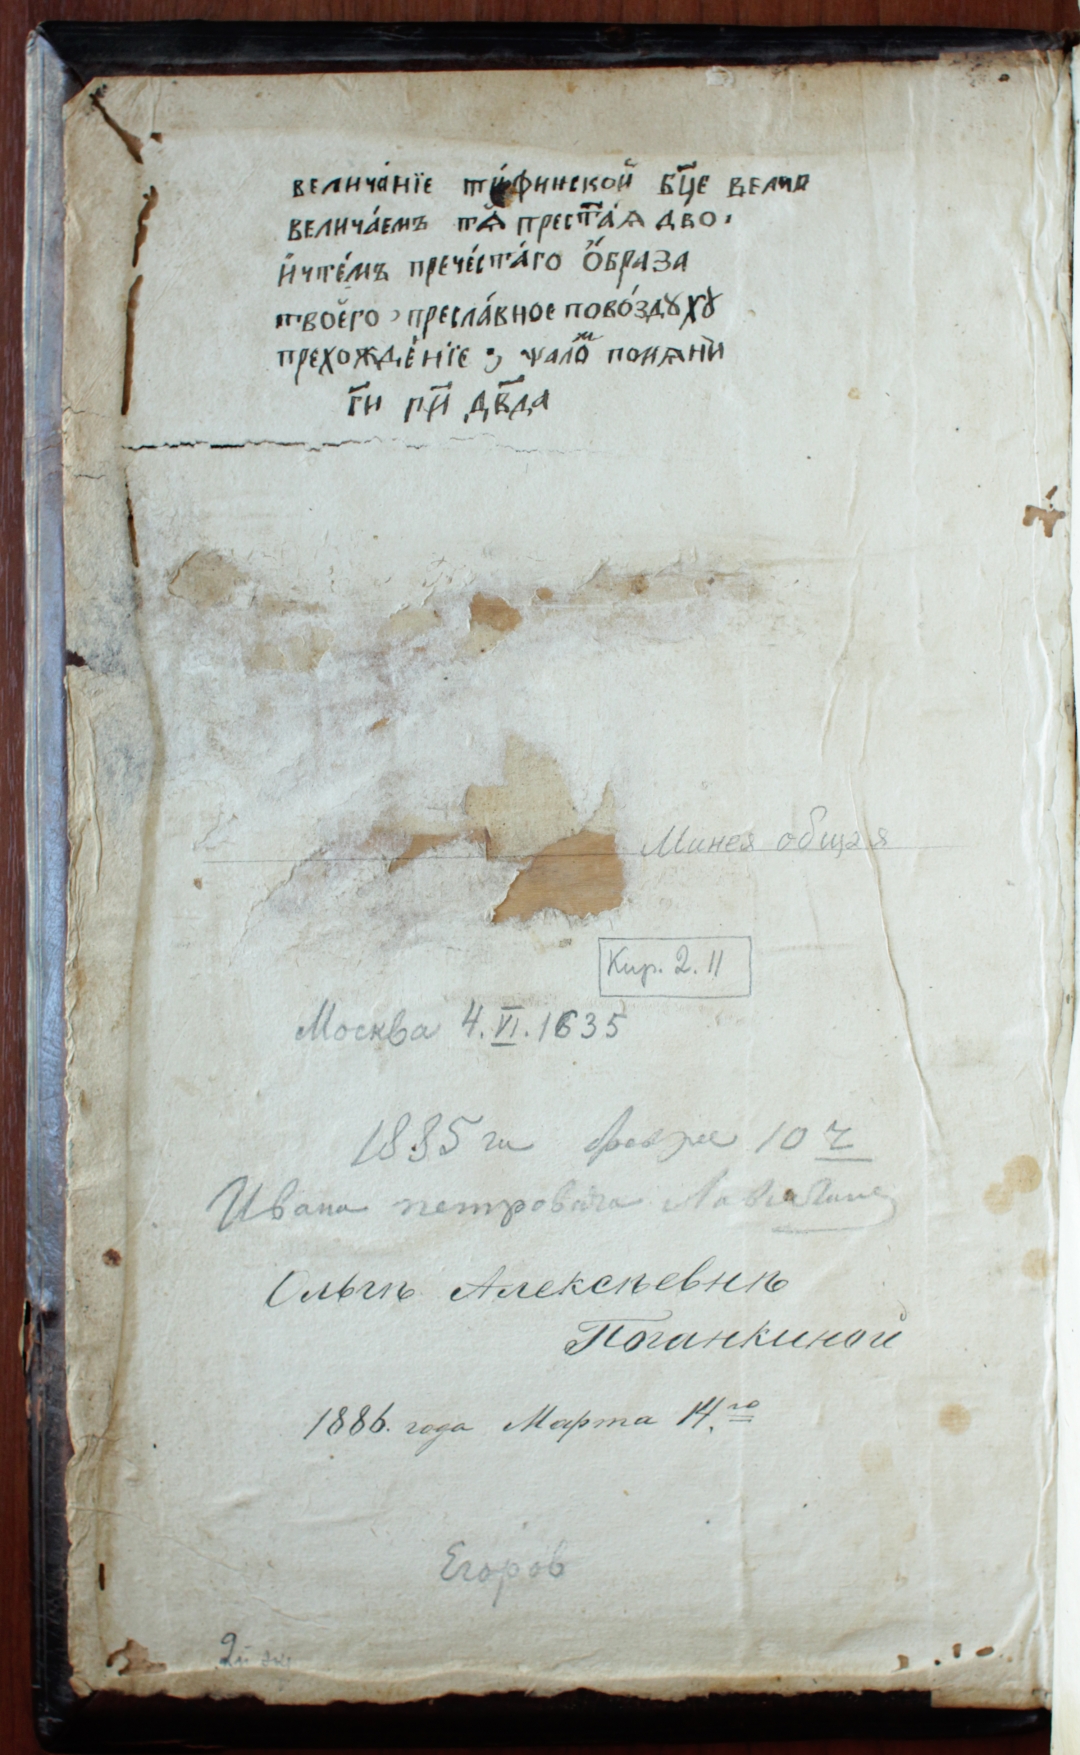 велича́нїе ти́финской Бцѐ вели
велича́емъ тѧ̀ прест҃а́ѧ дв҃о.
и҆чте́мъ пречи́ста́го ѻ҆́браза
твоего̀, пресла́вное пово́здꙋхꙋ
прехожде́нїе ; ѱало́м помѧни̑
г҃и р҃и дв҃да
Минея общая
Кир. 2. 11
Москва 4.VI.1635
1885 10
Ивана петровича
Ольгѣ Алексѣевнѣ
Поганкиной
1886. года Марта 14.го
Егоров
2й эк.